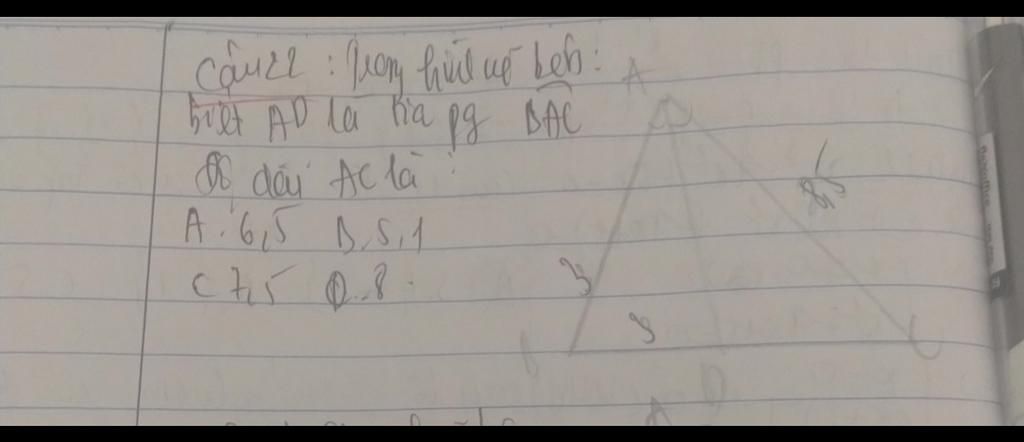 Câu 22 : Trong hình vẽ bên :
biết AD là tia pg BAC
Độ dài AC là :
A. 6,5 B. 5,1
C 7,5 D. 8
A
3
B
D
C
A